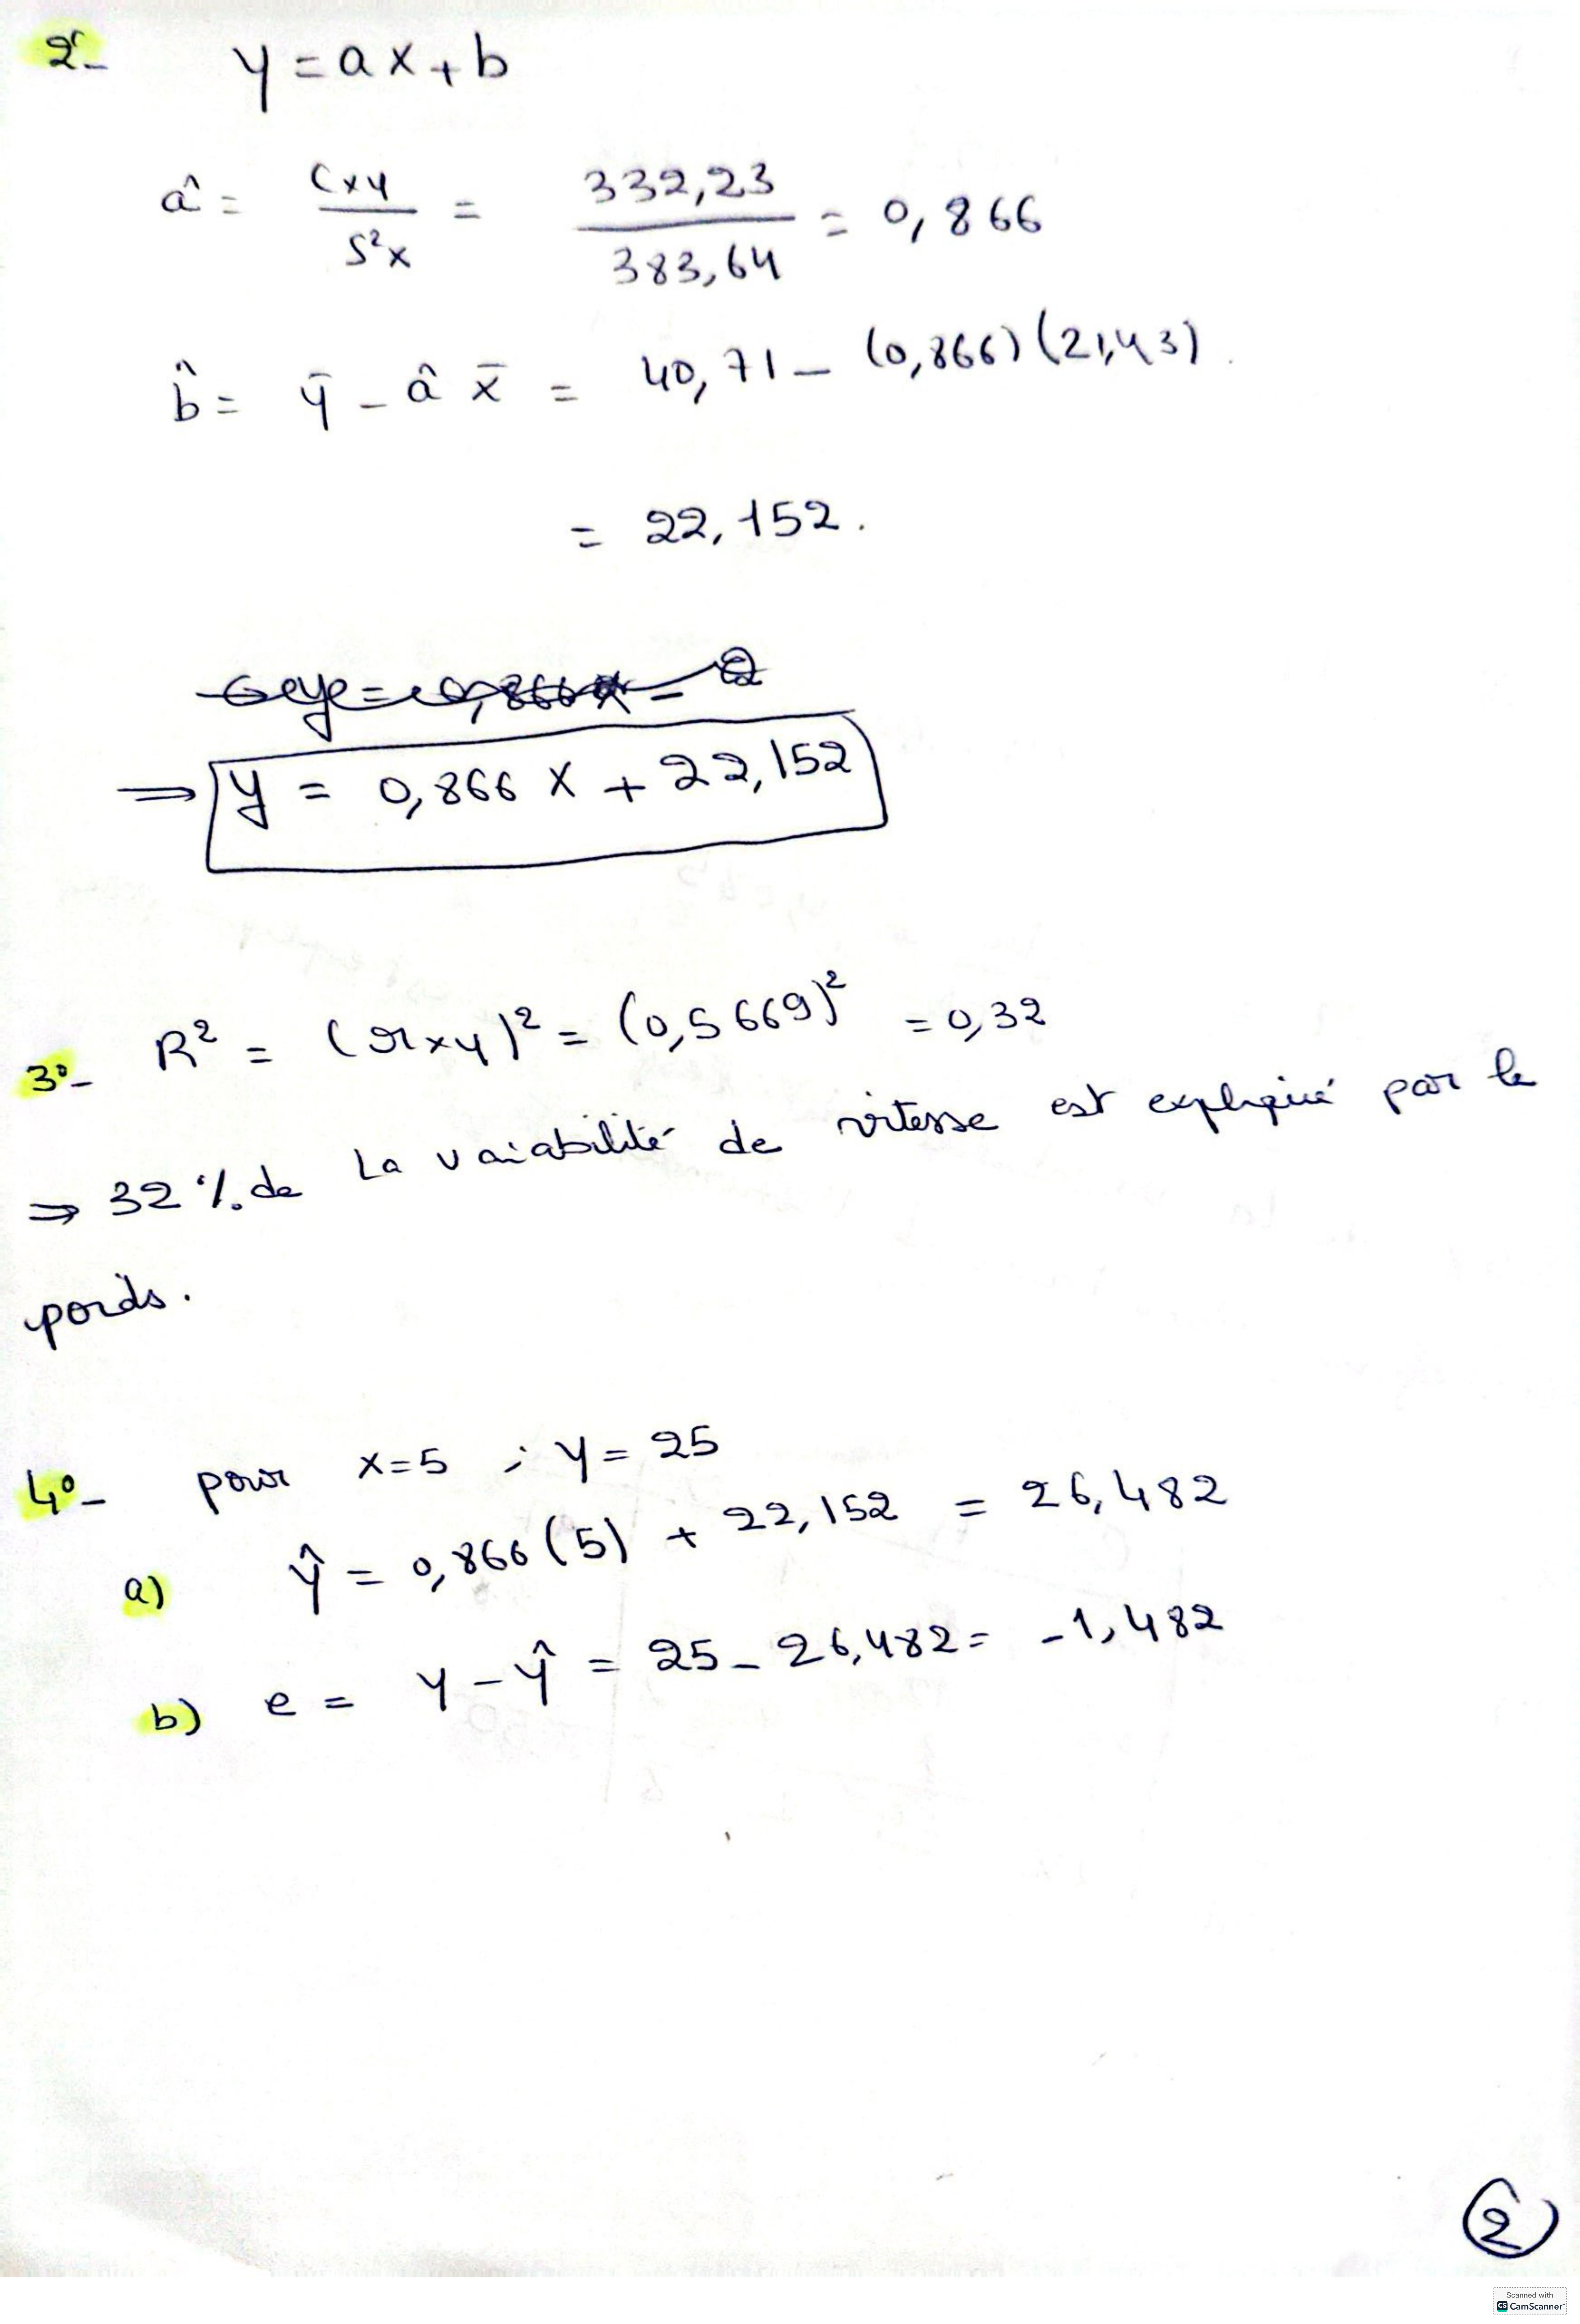 2°- y = ax + b
â = Cxy / S²x = 332,23 / 383,64 = 0,866
b̂ = ȳ - â x̄ = 40,71 - (0,866)(21,43).
= 22,152.
⇒ y = 0,866 x + 22,152
3°- R² = (rxy)² = (0,5669)² = 0,32
⇒ 32 % de La vaiabilité de vitesse est expliqué par le
poids.
4°- pour x=5 ; y = 25
a) ŷ = 0,866 (5) + 22,152 = 26,482
b) e = y - ŷ = 25 - 26,482 = -1,482
2
Scanned with
CS CamScanner